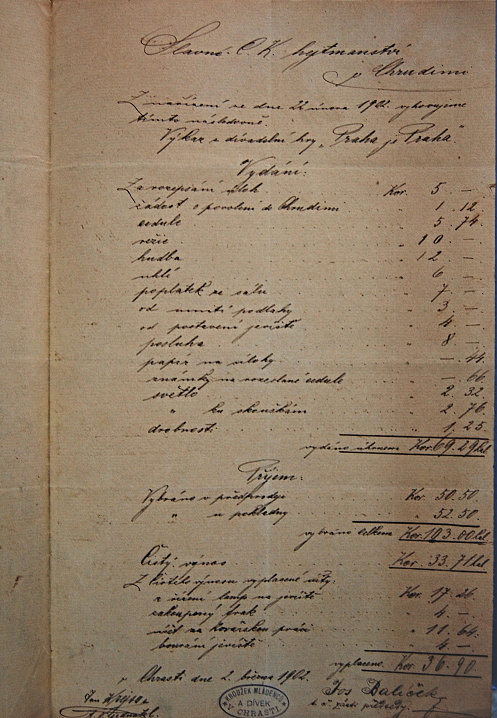 Slavné C. K. hejtmanství
v Chrudimi
Z nařízení ze dne 22 února 1902 vyhovujeme
tímto následovně.
Výkaz z divadelní hry „Praha je Praha“.
Vydání:
Za rozepsání úloh Kor. 5 —
žádost o povolení do Chrudimi „ 1. 12
cedule „ 5. 74
režie „ 10 —
hudba „ 12 —
uhlí „ 6 —
poplatek ze sálu „ 7 —
od mytí podlahy „ 3 —
od postavení jeviště „ 4 —
posluha „ 8 —
papír na úlohy „ — 44
známky na rozeslané cedule „ — 66
světlo „ 2. 32
„ ku zkouškám „ 2. 76
drobnosti „ 1. 25
vydáno úhrnem Kor. 69. 29 hal
Příjem:
Vybráno v předprodeji Kor. 50. 50
„ u pokladny „ 52. 50
vybráno celkem Kor. 103. 00 hal
Čistý výnos Kor. 33. 71 hal
Z čistého výnosu vyplacené účty:
lamp na jeviště Kor. 17. 26
zakoupený frak „ 4 —
účet za kovářskou práci „ 11. 64
bourání jeviště „ 4 —
vyplaceno Kor. 36. 90
v Chrasti dne 2. března 1902.
Jos Dalíček
t. č. předseda
Jan
KROUŽEK MLÁDENCŮ
A DÍVEK
V CHRASTI